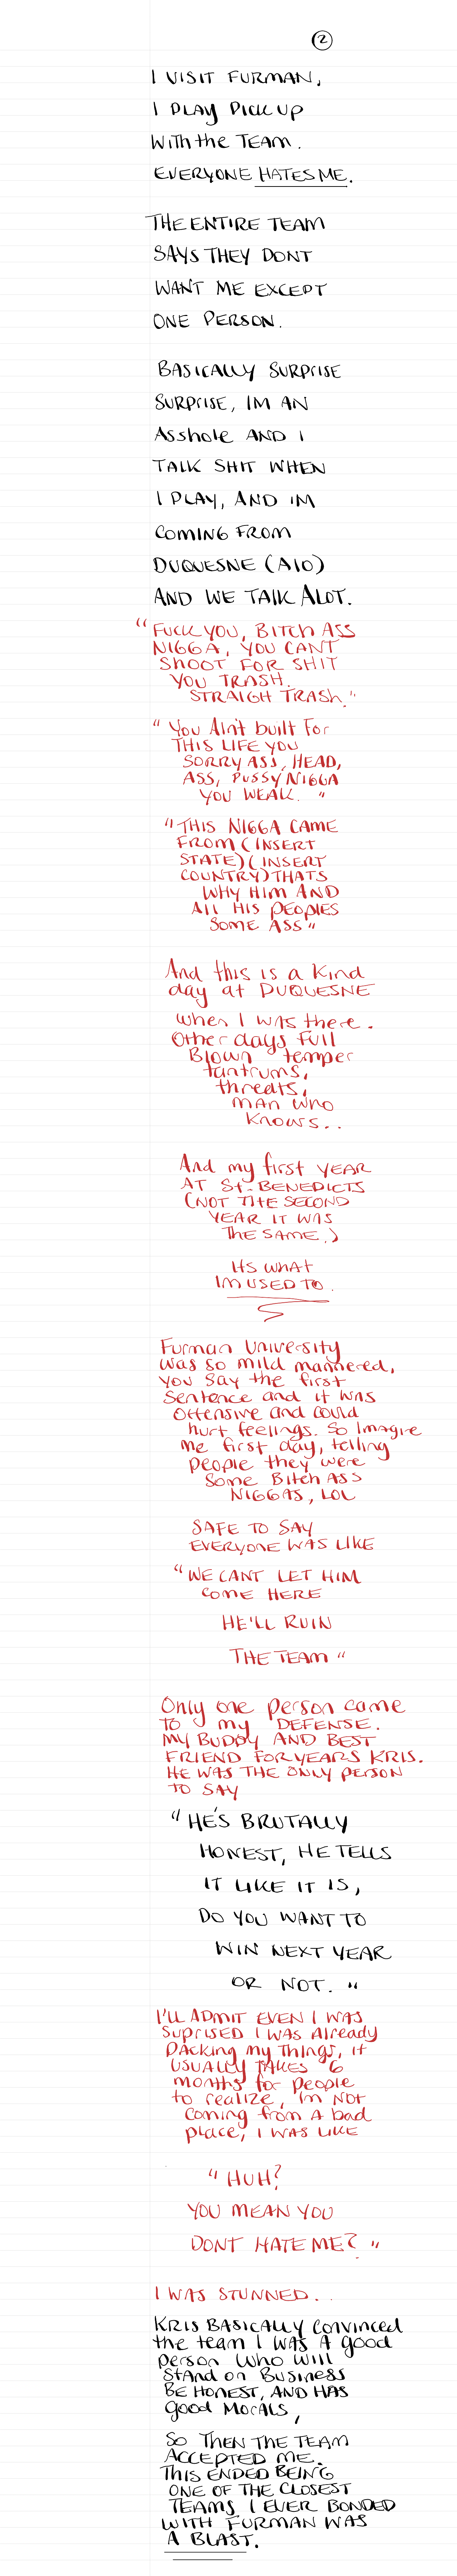 2
I VISIT FURMAN,
I PLAY PICK UP
WITH the TEAM.
EVERYONE HATES ME.
THE ENTIRE TEAM
SAYS THEY DONT
WANT ME EXCEPT
ONE PERSON.
BASICALLY SURPRISE
SURPRISE, IM AN
Asshole AND I
TALK SHIT WHEN
I PLAY, AND IM
COMING FROM
DUQUESNE (A10)
AND WE TALK ALOT.
"FUCK YOU, BITCH ASS
NIGGA, YOU CANT
SHOOT FOR SHIT
YOU TRASH.
STRAIGH TRASH."
"YOU Ain't built For
THIS LIFE YOU
SORRY ASS, HEAD,
ASS, PUSSY NIGGA
YOU WEAK. "
"THIS NIGGA CAME
FROM (INSERT
STATE) (INSERT
COUNTRY) THATS
WHY HIM AND
All HIS PEOPLES
SOME ASS"
And this is a kind
day at DUQUESNE
when I was there.
Other days Full
Blown temper
tantrums,
threats,
man who
knows..
And my first YEAR
AT St-BENEDICTS
(NOT THE SECOND
YEAR IT WAS
THE SAME.)
ITS WHAT
IM USED TO.
Furman University
was so mild mannered,
you say the first
sentence and it was
offensive and could
hurt feelings. So Imagie
me first day, telling
people they were
some Bitch ASS
NIGGAS, LOL
SAFE TO SAY
EVERYONE WAS LIKE
"WE CANT LET HIM
COME HERE
HE'LL RUIN
THE TEAM"
Only one person came
TO my DEFENSE.
MY BUDDY AND BEST
FRIEND FOR YEARS KRIS.
HE WAS THE ONLY PERSON
TO SAY
"HE'S BRUTALLY
HONEST, HE TELLS
IT LIKE IT IS,
DO YOU WANT TO
WIN NEXT YEAR
OR NOT. "
I'LL ADMIT EVEN I WAS
SUPRISED I WAS Already
PACKING my THINGS, it
USUALLY TAKES 6
months for people
to realize, Im NOT
coming from A bad
place, I WAS LIKE
"HUH?
YOU MEAN YOU
DONT HATE ME? "
I WAS STUNNED..
KRIS BASICALLY Convinced
the team I WAS A good
person Who will
stand on Business
BE HONEST, AND HAS
good Morals,
SO THEN THE TEAM
ACCEPTED ME.
THIS ENDED BEING
ONE OF THE CLOSEST
TEAMS I EVER BONDED
WITH FURMAN WAS
A BLAST.